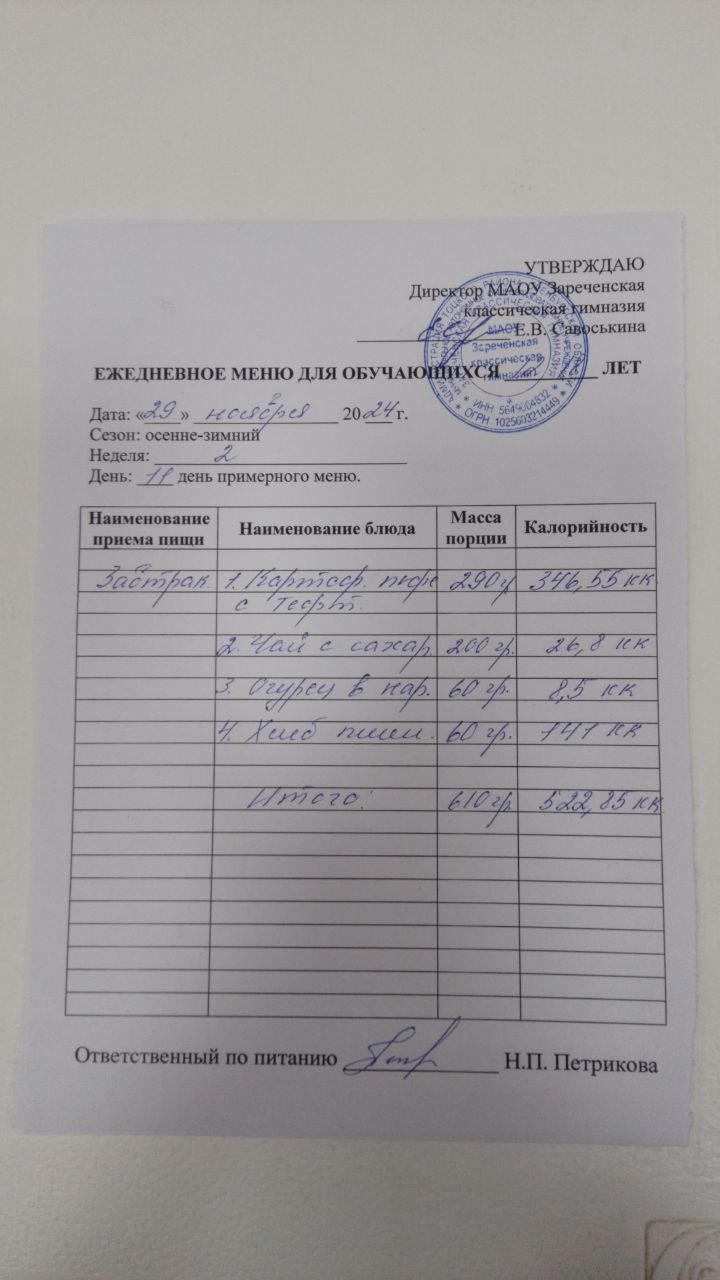 УТВЕРЖДАЮ
Директор МАОУ Зареченская
классическая гимназия
Е.В. Савоськина
МАОУ
Зареченская
классическая
гимназия
ИНН 5649004832
ОГРН 1025603214449
ЕЖЕДНЕВНОЕ МЕНЮ ДЛЯ ОБУЧАЮЩИХСЯ ЛЕТ
Дата: «29» ноября 2024 г.
Сезон: осенне-зимний
Неделя: 2
День: 11 день примерного меню.
Наименование приема пищи Наименование блюда Масса порции Калорийность
Завтрак 1. Картоф. пюре 290 гр 346,55 кк
с тефт.
2. Чай с сахар. 200 гр. 26,8 кк
3. Огурец в нар. 60 гр. 8,5 кк
4. Хлеб пшен. 60 гр. 141 кк
Итого: 610 гр 522,85 кк
Ответственный по питанию Н.П. Петрикова